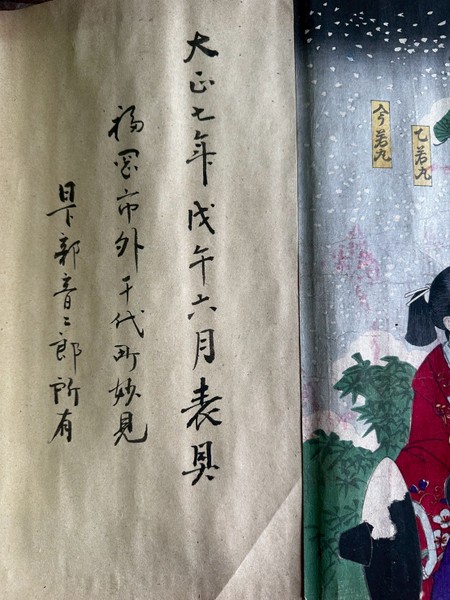 大正七年戊午六月表具
福岡市外千代町妙見
日下部音二郎所有
乙若丸
今若丸